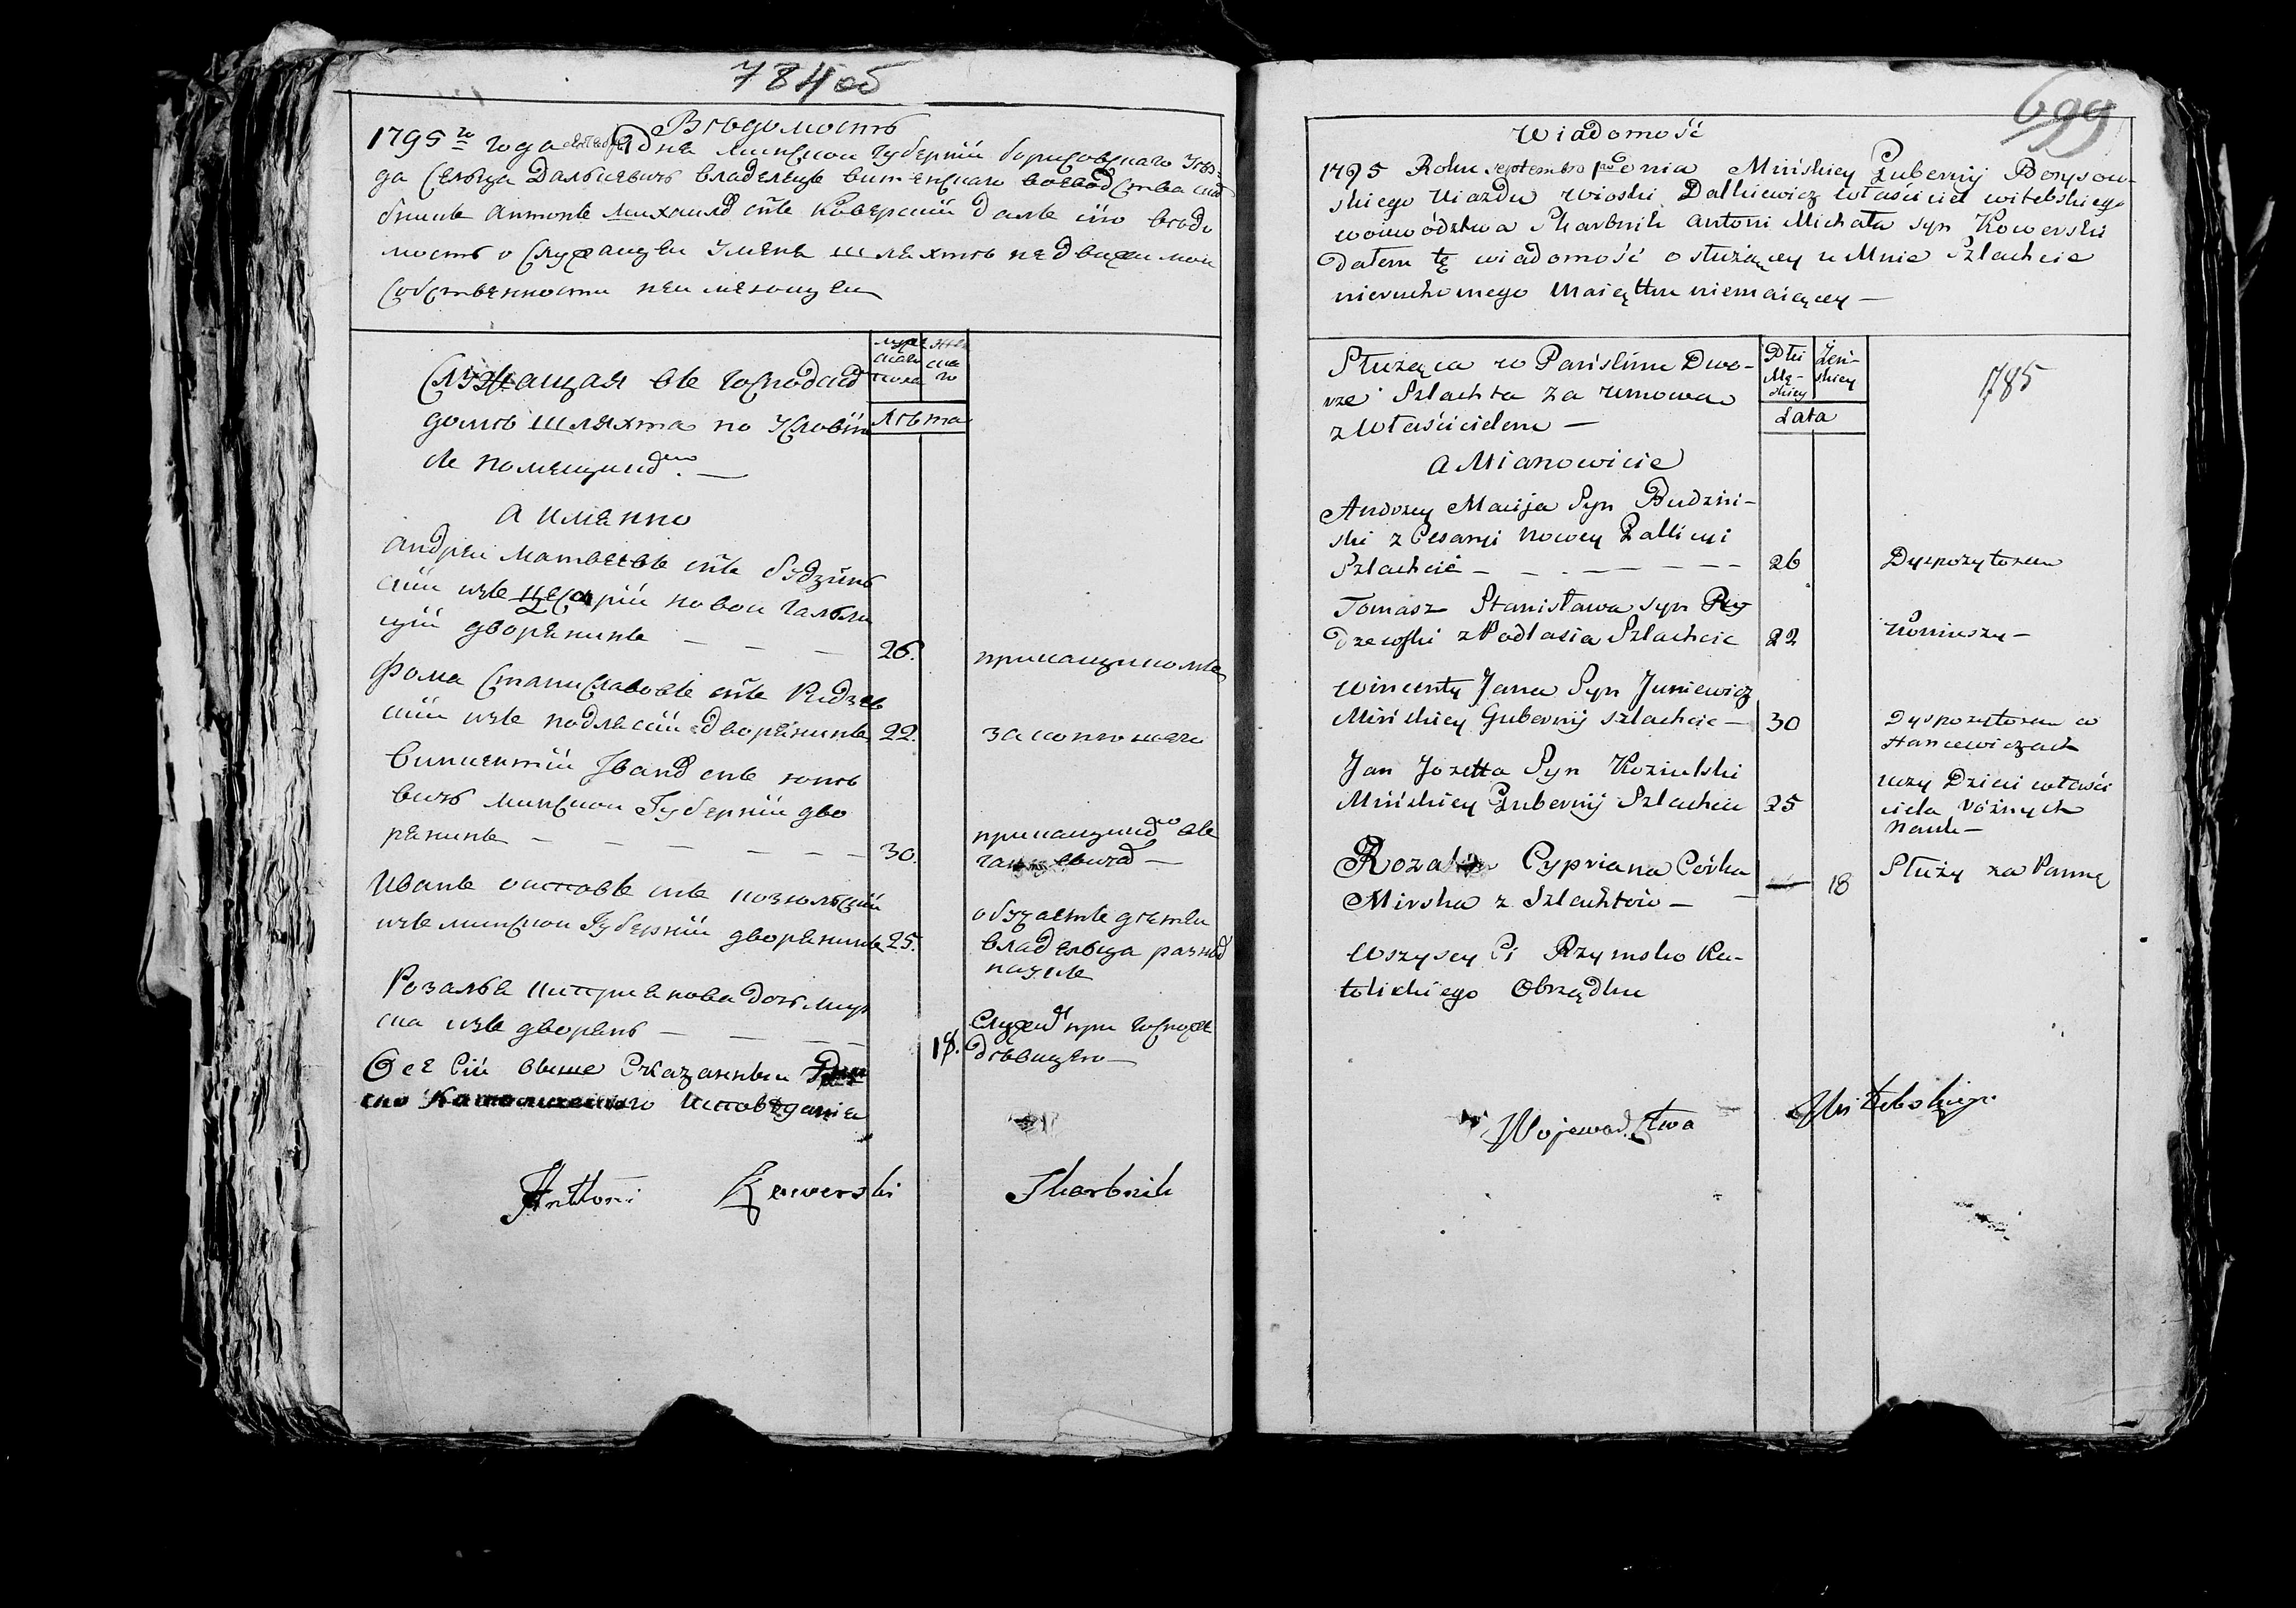 784 об
Вѣдомость
1795го года сентября 1 Дня Минской Губернии Борисовского Уѣз-
да Сельца Далькевичъ владелецъ витепского воеводства скар
бникъ Антонъ Михайловъ снъ Коверский далъ сию вѣдо
мость о служащей у меня шляхтѣ недвижимой
собственности неимеющей
Служащая въ господском
домѣ шляхта по условию
съ помещиком. —
мужеска пола
женска го
Лѣта
А именно
Андрей Матвеевъ снъ Будзинь
ский изъ Цесарии новой Галли
ции дворенинъ — — — 26. прикащикомъ
Фома Станиславовъ снъ Ридзев
ский изъ Подлесии дворенинъ 22. за конюшего
Винцентий Иванов снъ Юне
вичъ Минской Губернии дво
ренинъ — — — — — — 30. прикащиком въ
Ганцевичах —
Иванъ Осиповъ снъ Козюльский
изъ Минской Губернии дворенинъ 25. обучаетъ детей
владельца разных
наукъ
Розалья Циприенова дочь Мирс
ка изъ дворенъ — — — 18. Служит при госпоже
девицею —
Все сии выше сказанные Рим
ско Католического исповедания
Anttoni Kowerski Skarbnik
699
Wiadomość
1795 Roku septembra 1go Dnia Minskiey Gubernij Borysow-
skiego Uiazdu wioski Dalkiewicz właściciel witebskiego
wojewodztwa Skarbnik Antoni Michała syn Kowerski
Dałem tę wiadomość o służącey u Mnie Szlachcie
nieruchomego Maiątku niemaiącey —
Służąca w Pańskim Dwo-
rze Szlachta za umową
z właścicielem —
Płci Mę- skiey
Żeń- skiey
Lata
1785
A Mianowicie
Andrzey Macija Syn Budziń-
ski z Cesaryi nowey Gallicyi
Szlachcic — — — — — — 26 Dyspozytorem
Tomasz Stanisława syn Ry
dzewski z Podlasia Szlachcic 22 Koniuszy —
Wincenty Jana Syn Juniewicz
Mińskiey Gubernij szlachcic — 30 Dyspozytorem w
Hancewiczach
Jan Jozefa Syn Koziulski
Mińskiey Gubernij Szlachcic 25 uczy Dzieci właści
ciela różnych
Nauk —
Rozalia Cypriana Córka
Mirska z Szlachtów — — 18 Służy za Pannę
Wszyscy Ci Rzymsko Ka-
tolickiego Obrządku
Wojewodztwa Witebskiego